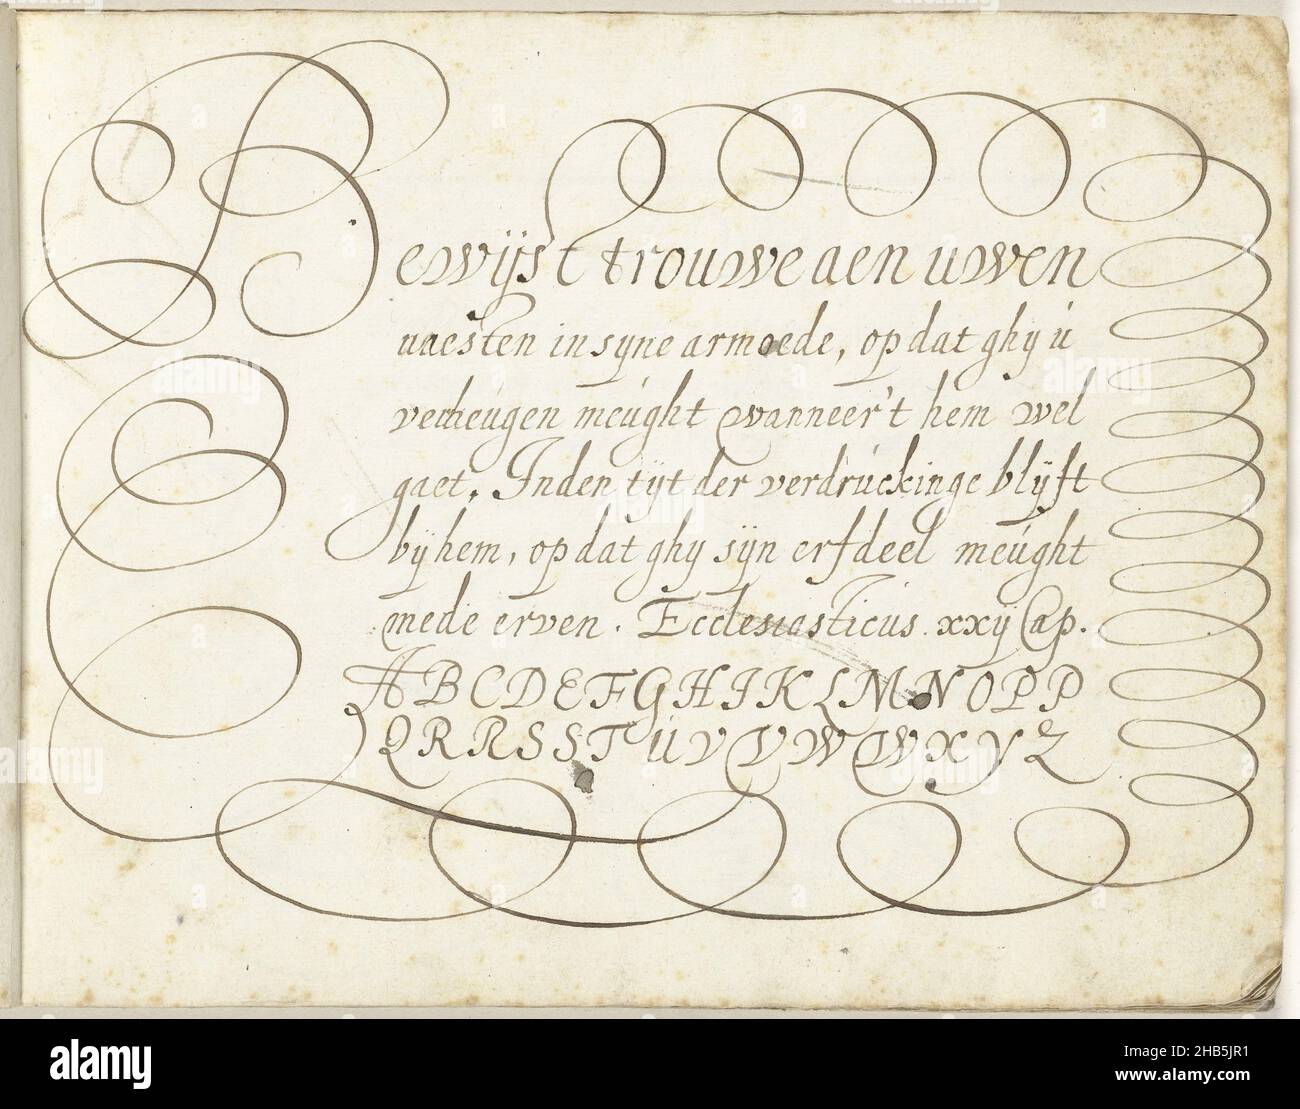 Bewijst trouwe aen uwen
naesten in syne armoede, op dat ghy ú
verheúgen meúght wanneer't hem wel
gaet. Inden tijt der verdrúckinge blijft
bij hem, op dat ghy sijn erfdeel meúght
mede erven. Ecclesiasticus. xxij Cap.
A B C D E F G H I K L M N O P P
Q R R S S T U V V W W X Y Z
alamy
Image ID: 2HB5JR1
www.alamy.com